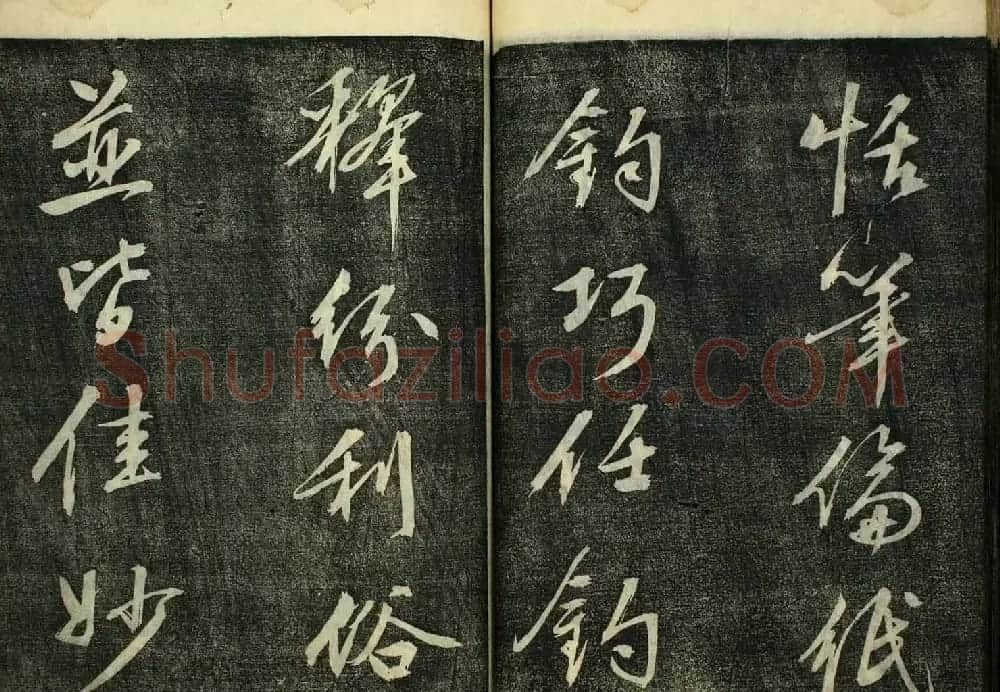 恬筆倫紙
鈞巧任鈞
釋紛利俗
並皆佳妙
Shufaziliao.COM